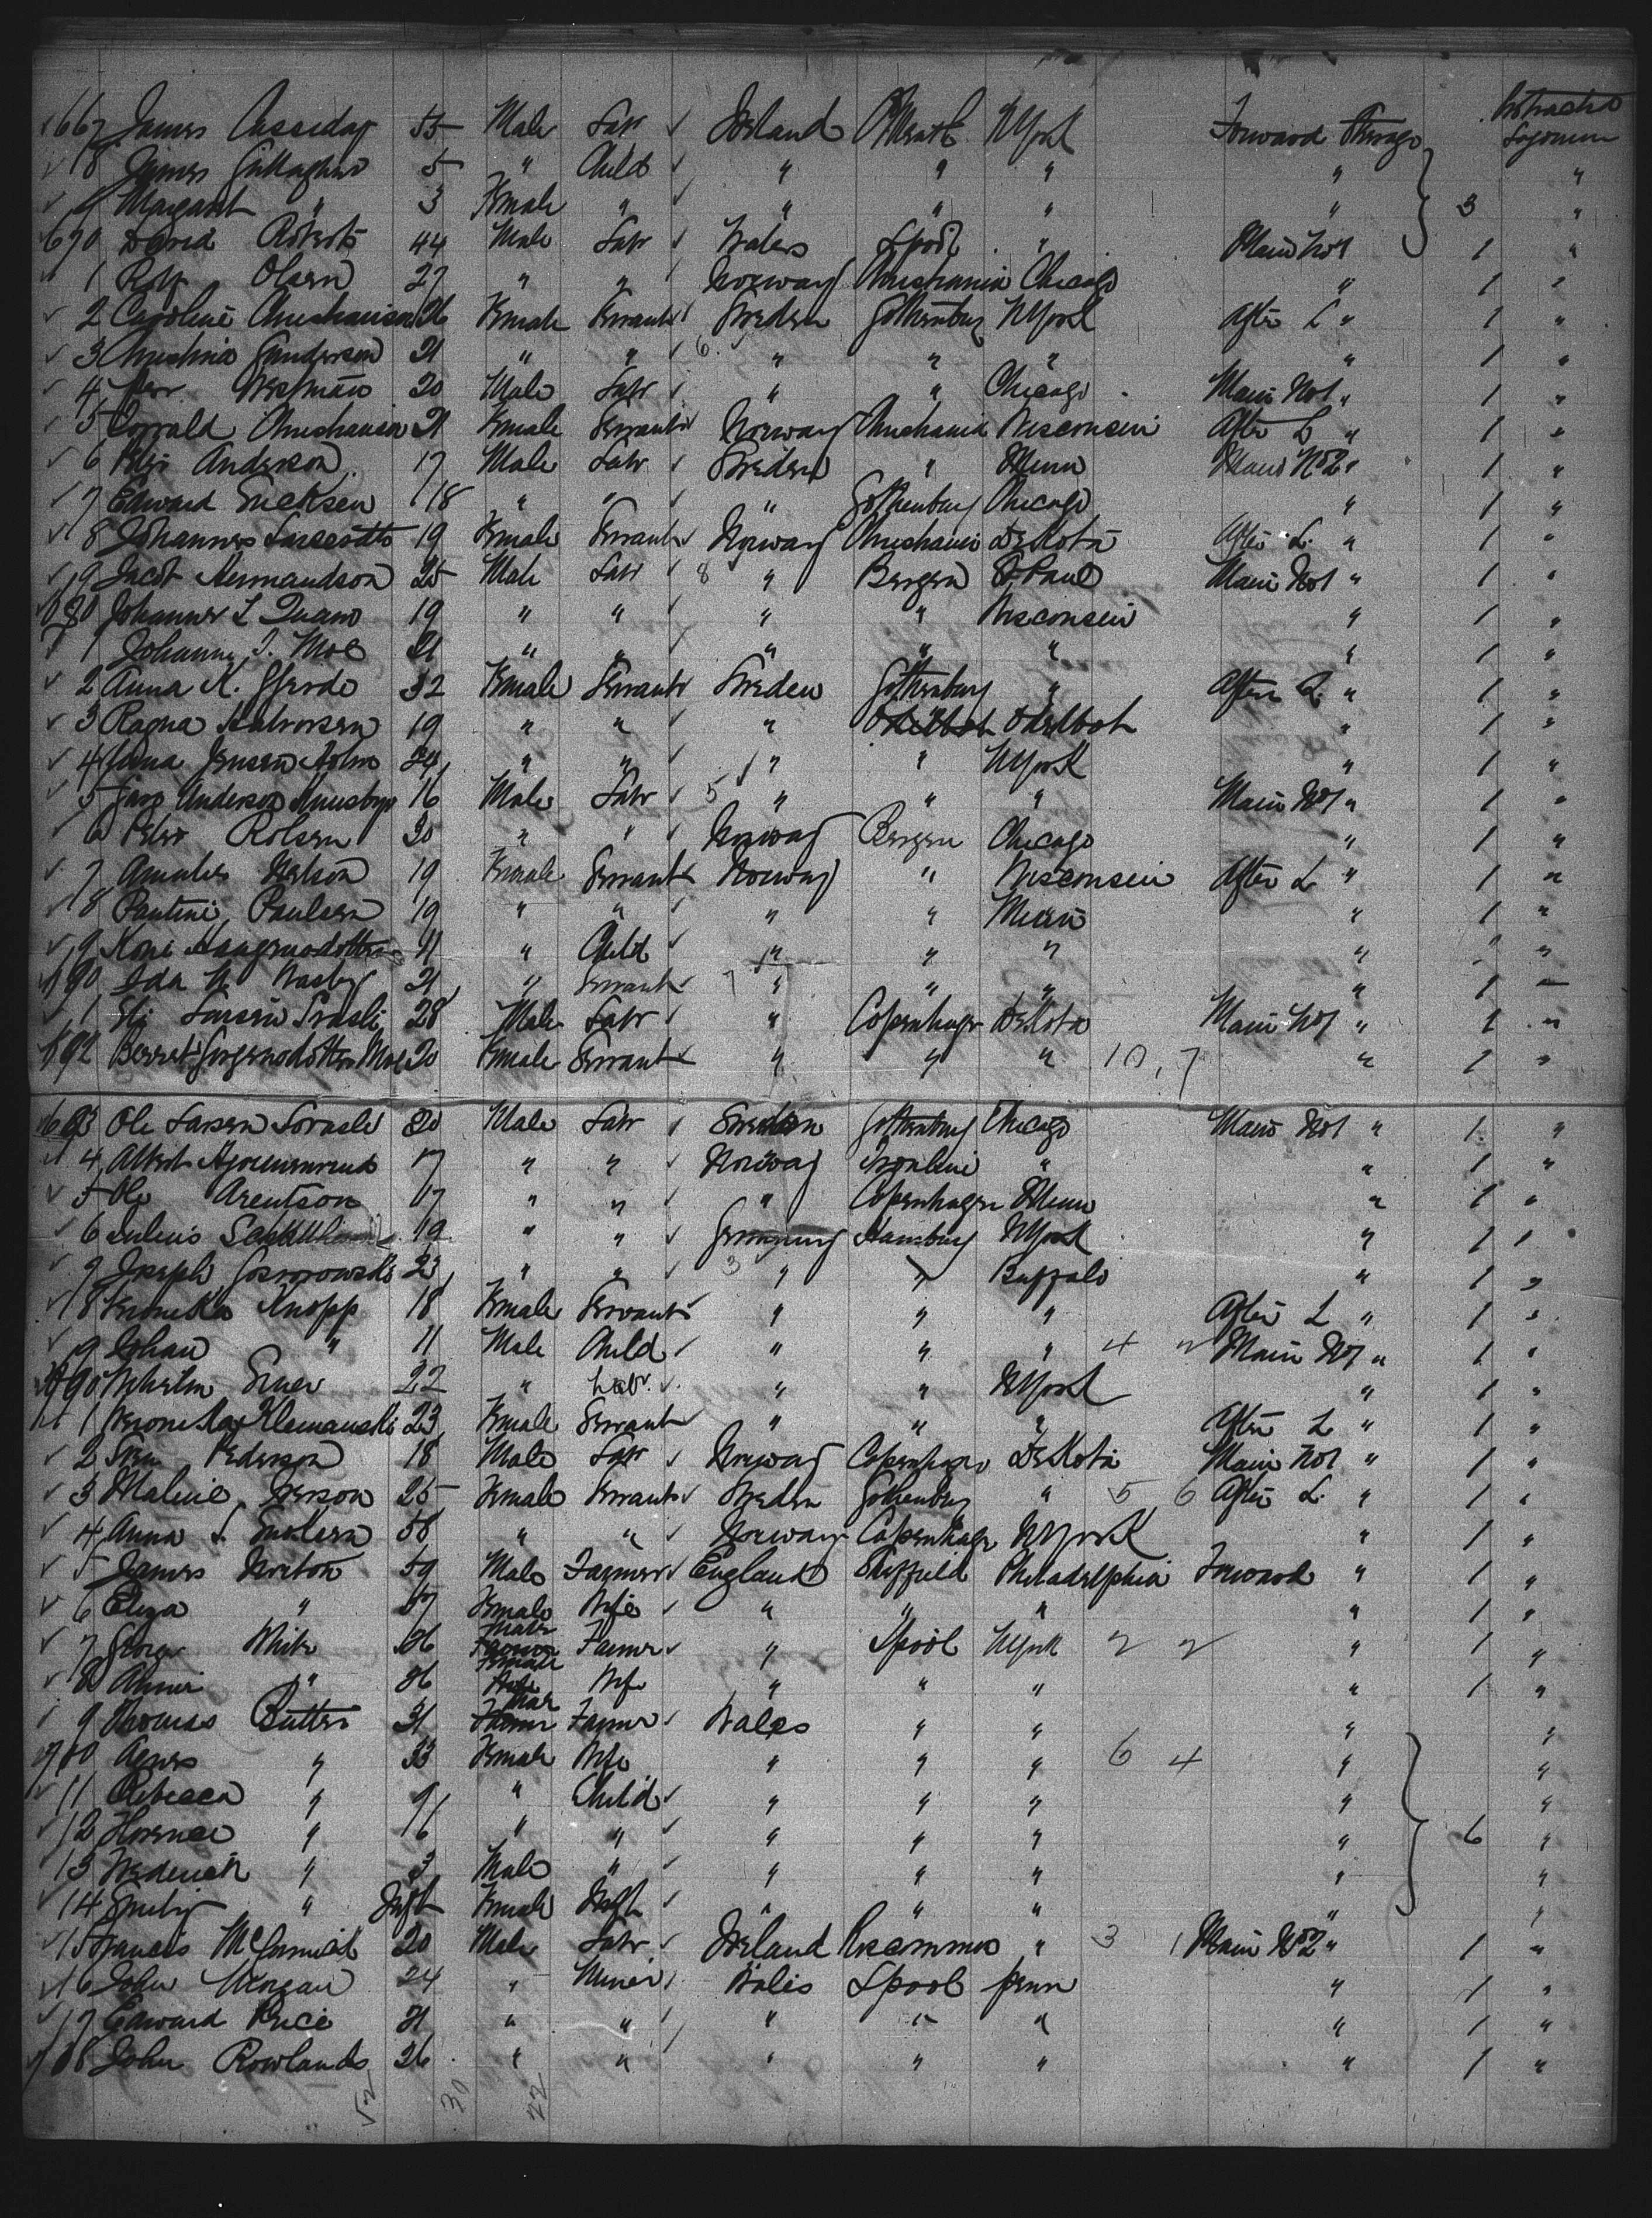 667 James Cassiday 55 Male Labr Ireland Meath NYork Forward Steerage Protracted Sojourn
8 James Gallagher 5 " Child " " " " "
9 Margaret " 3 Female " " " " " 3 "
670 David Roberts 44 Male Labr Wales Lpool " Main No1 1 "
1 Olsen 27 " " Norway Christiania Chicago " 1 "
2 Caroline Christiansen 26 Female Servant Sweden Gothenburg NYork After L " 1 "
3 Christina Gunderson 21 " " 6 " " " " 1 "
4 Westman 20 Male Labr " " Chicago Main No1 " 1 "
5 Christiansen 21 Female Servant Norway Christiania Wisconsin After L " 1 "
6 Anderson 17 Male Labr Sweden " Minn Main No2 " 1 "
7 Edward Ericksen 18 " " " Gothenburg Chicago " 1 "
8 Johannes 19 Female Servant Norway Christiania Dakota After L. " 1 "
9 Jacob Hermandson 25 Male Labr 8 " Bergen St Paul Main No1 " 1 "
680 Johannes L Quam 19 " " " " Wisconsin " 1 "
1 Johannes J. Moe 21 " " " " " " 1 "
2 Anna K. 32 Female Servant Sweden Gothenburg " After L. " 1 "
3 Ragna Halvorsen 19 " " " " 1 "
4 Jensen Holm 24 " " " " NYork " 1 "
5 Anderson 16 Male Labr 5 " " " Main No1 " 1 "
6 Peter Rolsen 20 " " Norway Bergen Chicago " 1 "
7 Nelson 19 Female Servant Norway " Wisconsin After L " 1 "
8 Pauline Paulsen 19 " " " " Minn " 1 "
9 11 " Child " " " " " "
690 Ida N Nasby 21 " Servant 7 " " " " 1
1 Larsen 28 Male Labr " Copenhagen Dakota Main No1 " 1 "
692 Berret Moe 20 Female Servant " " " 10, 7 " 1 "
693 Ole Larsen 20 Male Labr Sweden Gothenburg Chicago Main No1 " 1 "
4 Albert 17 " " Norway " " 1 "
5 Ole Arentson 17 " " " Copenhagen Minn " 1 "
6 Julius 19 " " Germany Hamburg NYork " 1 "
7 Joseph 23 " " 3 " " Buffalo " 1 "
8 Veronika Knopp 18 Female Servant " " " After L " 1 "
9 Johan " 11 Male Child " " " 4 2 Main No1 " 1 "
Wilhelm 22 " Labr. " " NYork " 1 "
1 Veronika Klemanski 23 Female Servant " " " After L " 1 "
2 Sven Pederson 18 Male Labr Norway Copenhagen Dakota Main No1 " 1 "
3 Maline Iverson 25 Female Servant Sweden Gothenburg " 5 6 After L. " 1 "
4 Anna 58 " " Norway Copenhagen NYork " 1 "
5 James Norton 59 Male Farmer England Sheffield Philadelphia Forward " 1 "
6 Eliza " 57 Female Wife " " " " 1 "
7 George White 26 Male Farmer " Lpool NYork 2 2 " 1 "
8 Annie " 26 Female Wife " " " " 1 "
9 Thomas Butters 31 Male Farmer Wales " " " "
Agnes " 33 Female Wife " " " 6 4 " "
11 Rebecca " 9 " Child " " " " "
12 Florence " " " " " " " 6 "
13 Frederick " 3 Male " " " " " "
14 Emily " Inft Female Inft " " " " "
15 Francis McCormick 20 Male Labr Ireland Roscommon " 3 1 Main No2 " 1 "
16 John Morgan 24 " Miner Wales Lpool Penn " 1 "
17 Edward Price 21 " " " " " " 1 "
John Rowlands 26 " " " " " " 1 "
52 30 22